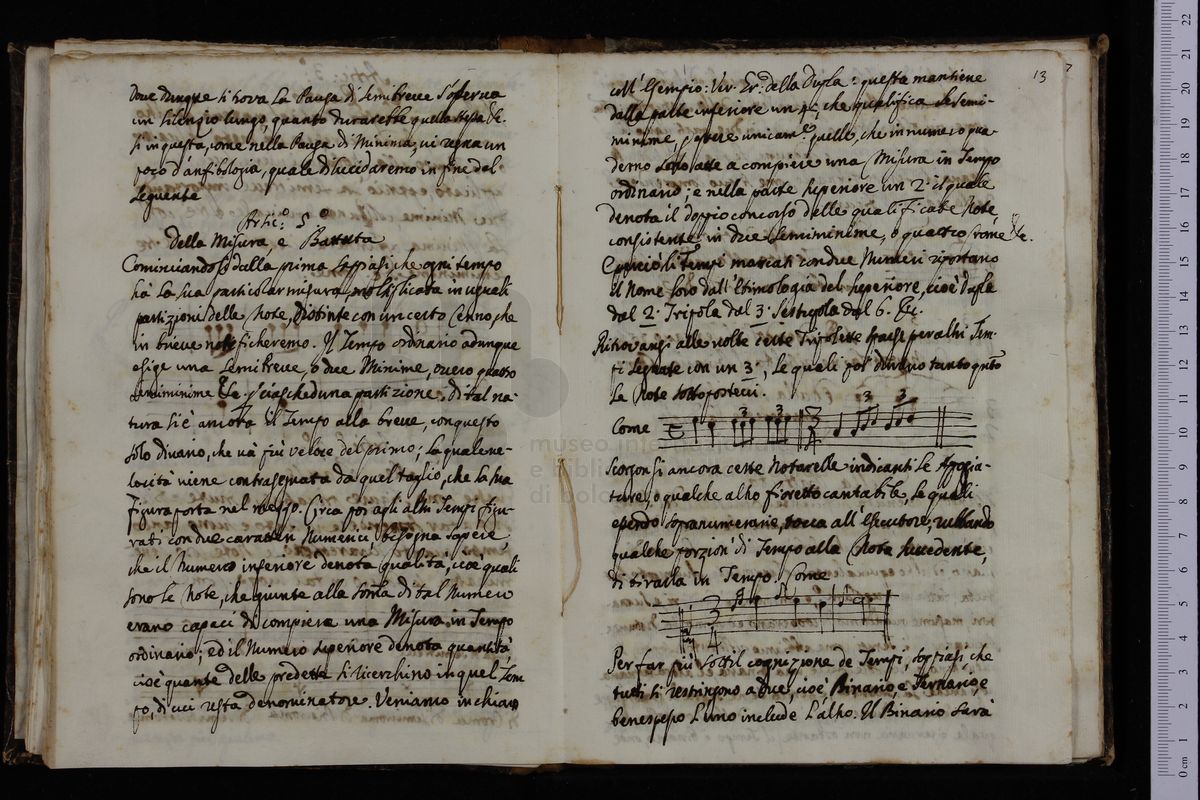 Dove dunque si trova la Pausa di Semibreve s'osserva
un silenzio lungo, quanto durarebbe quella stessa &c.
Sì in questa, come nella Pausa di Minima, vi regna un
poco d'anfibologia, quale dilucidaremo in fine del
seguente
Artic.º 5º
Della Misura, e Battuta
Cominciandosi dalla prima sappiasi, che ogni tempo
hà la sua particolar misura, moltiplicata in uguali
partizioni delle Note, distinte con un certo Cenno, che
in brieve notificheremo. Il Tempo ordinario adunque
esige una Semibreve, o due Minime, overo quatro
semiminime &c. p ciascheduna partizione. Di tal na-
tura si è ancora il Tempo alla breve, con questo
solo divario, che và più veloce del primo; la qual ve-
locità viene contrasegnata da quel taglio, che la sua
figura porta nel mezzo. Circa poi agli altri Tempi figu-
rati con due caratteri Numerici, bisogna sapere,
che il Numero inferiore denota qualità, cioè quali
sono le Note, che giunte alla soma di tal Numero
erano capaci di compiere una Misura in Tempo
ordinario; ed il Numero superiore denota quantità
cioè quante delle predette si ricerchino in quel Tem-
po, di cui resta denominatore. Veniamo in chiaro
13
coll'Esempio: Ver. Gr. della Dupla: questa mantiene
dalla parte inferiore un 4, che qualifica le semi-
minime, p essere unicam.e quelle, che in numero qua-
derno sono atte a compiere una Misura in Tempo
ordinario; e nella parte superiore un 2. il quale
denota il doppio concorso delle qualificate Note,
consistente in due Semiminime, o quattro crome &c.
E perciò li Tempi marcati con due Numeri riportano
il Nome loro dall'Etimologia del superiore, cioè Dupla
dal 2. Tripola dal 3. Sestupola dal 6. &c.
Ritrovansi alle volte certe Tripolette sparse per altri Tem-
pi segnate con un 3., le quali poi divario tanto q.to
le Note sottoposteci.
Come
3 3 3 4 3 3
Scorgonsi ancora certe Notarelle indicanti le Appogia-
ture, o qualche altro fioretto cantabile, le quali
essendo sopranumerarie, tocca all'Esecutore, rubbando
qualche porzion di Tempo alla Nota succedente,
di tirarla in Tempo. Come
3 4
Per far più sottil cognizione de Tempi, sappiasi, che
tutti si restringono a due, cioè Binario, e Ternario, e
benespesso l'uno include l'altro. Il Binario sarà